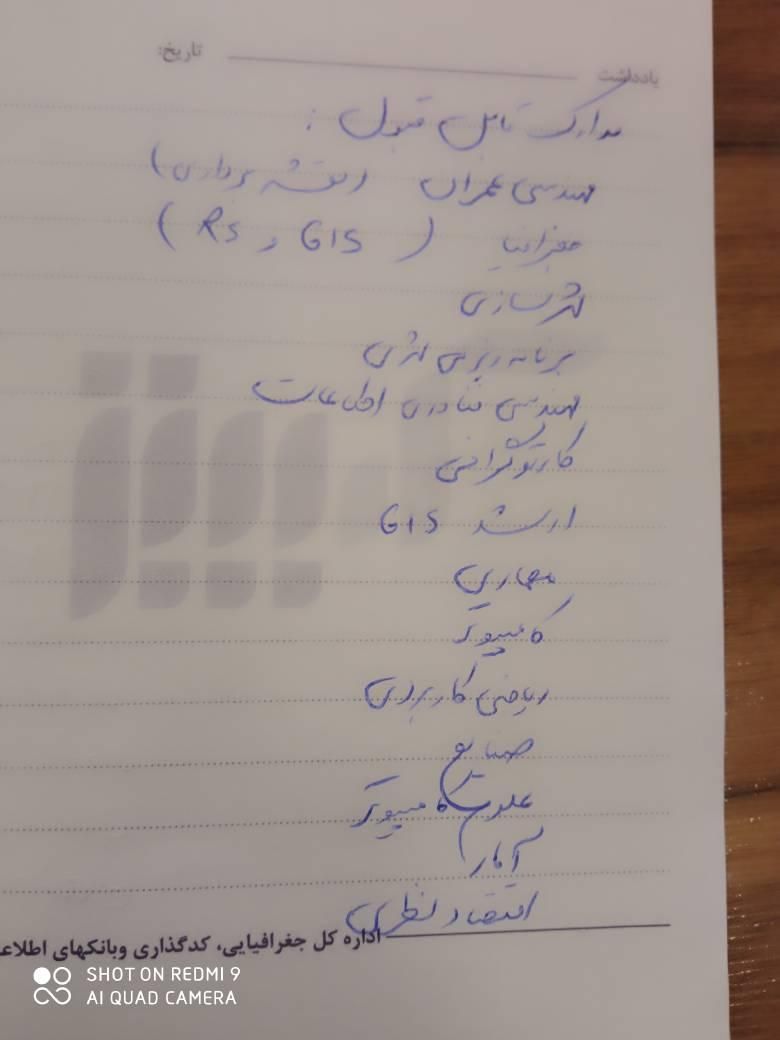 یادداشت تاریخ:
مدارک قابل قبول :
مهندسی عمران (نقشه برداری)
جغرافیا (GIS و RS)
شهرسازی
برنامه ریزی شهری
مهندسی فناوری اطلاعات
کارتوگرافی
ارشد GIS
معماری
کامپیوتر
ریاضی کاربردی
صنایع
علوم کامپیوتر
آمار
اقتصاد نظری
اداره کل جغرافیایی، کدگذاری وبانکهای اطلاعا
SHOT ON REDMI 9
AI QUAD CAMERA